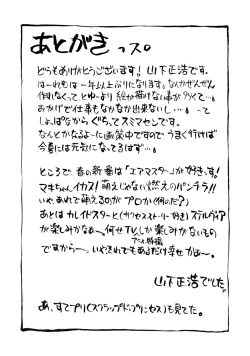 あとがきっス。
どうもありがとうございます！山下正浩です。
はーれむは一年以上ぶりになります。なんかぜんぜん
作れなくって、とゆーより絵が描けない事が多くて…。
おかげで仕事もなかなか出来ないし…。って
しょっぱなからぐちってスミマセンです。
なんとかなるよーに画策中ですのでうまく行けば
今夏には元気になってるはず…。
ところで、春の新番は「エアマスター」が好きっす！
マキちゃんイカス！萌えじゃない燃えのパンチラ!!
いや、あれで萌えるのがプロか(何のだ?)
あとはカレイドスターと(サクセスストーリー好き)ステルヴィア
が楽しみかなぁ～、何せTVしか楽しみがないもの
ですから～。いやそれでもあるだけ幸せかぁ～。
山下正浩でした。
あ、すてプリ(スクラップド・プリンセス)も見てた。